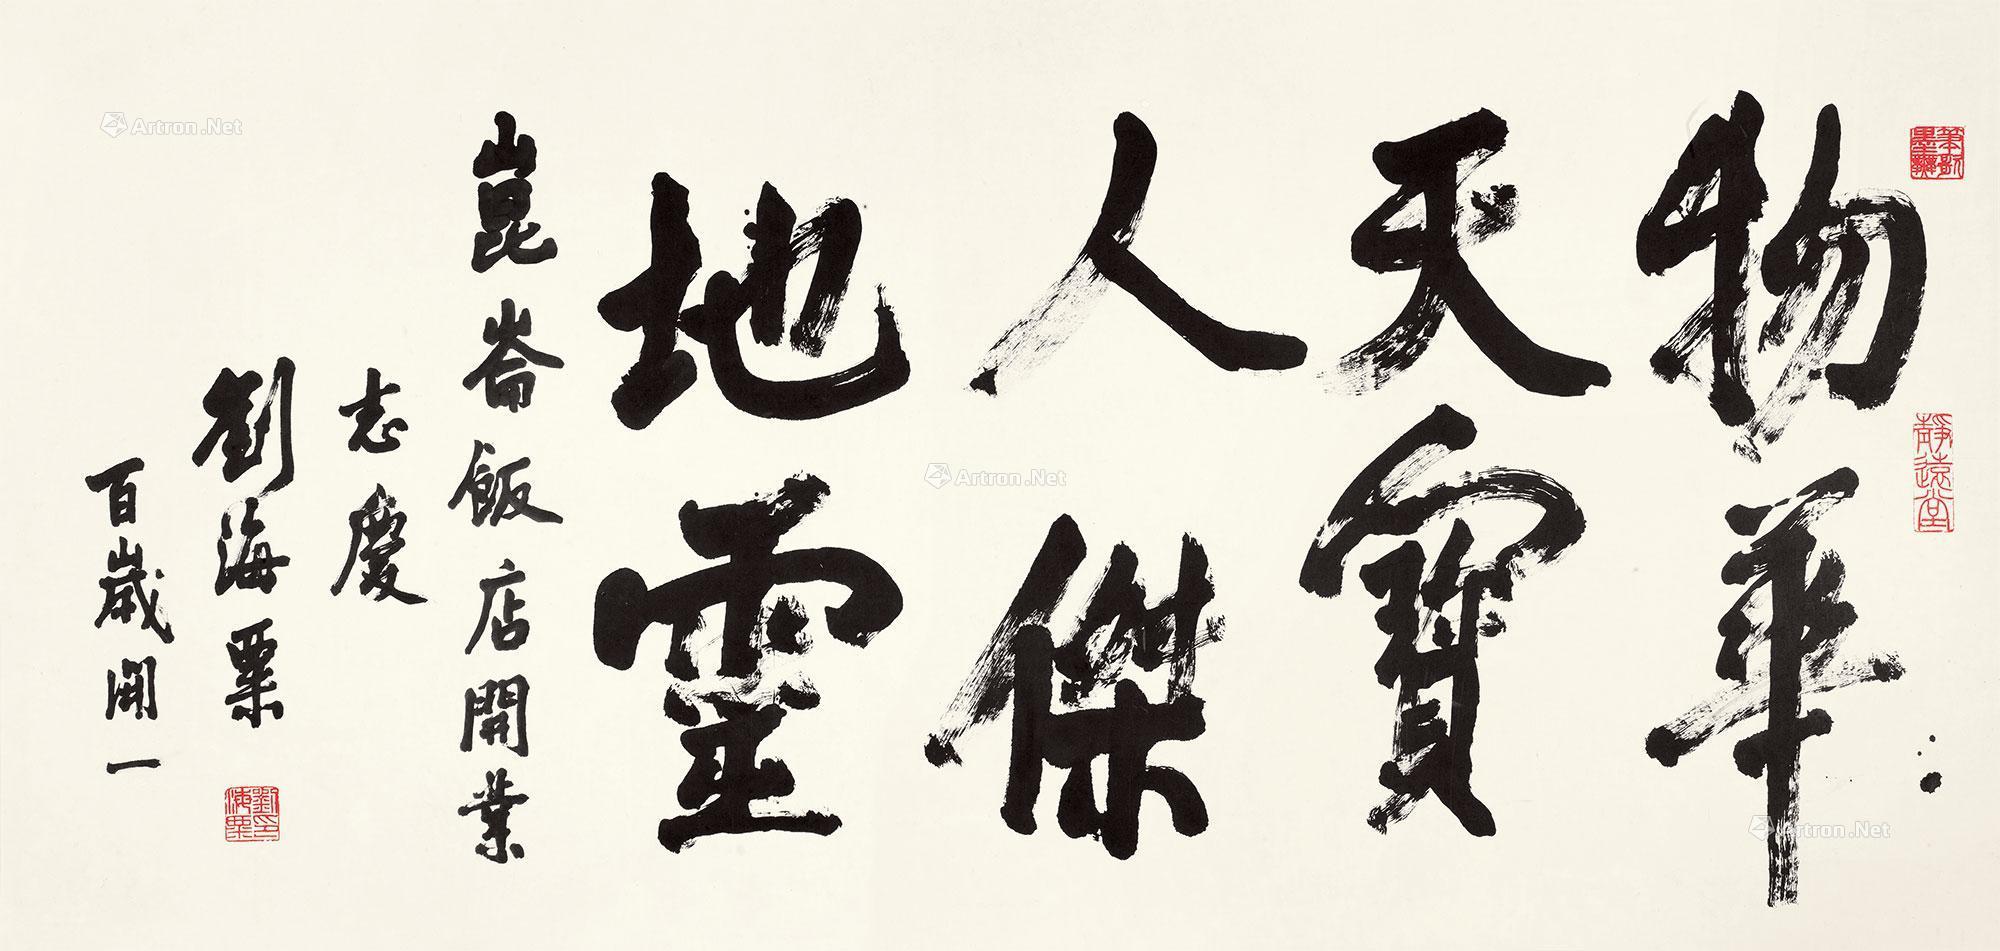 物華
天寶
人傑
地靈
崑崙飯店開業
志慶
劉海粟
百歲開一
筆歌墨舞
靜遠堂
劉海粟印
Artron.Net
Artron.Net
Artron.Net